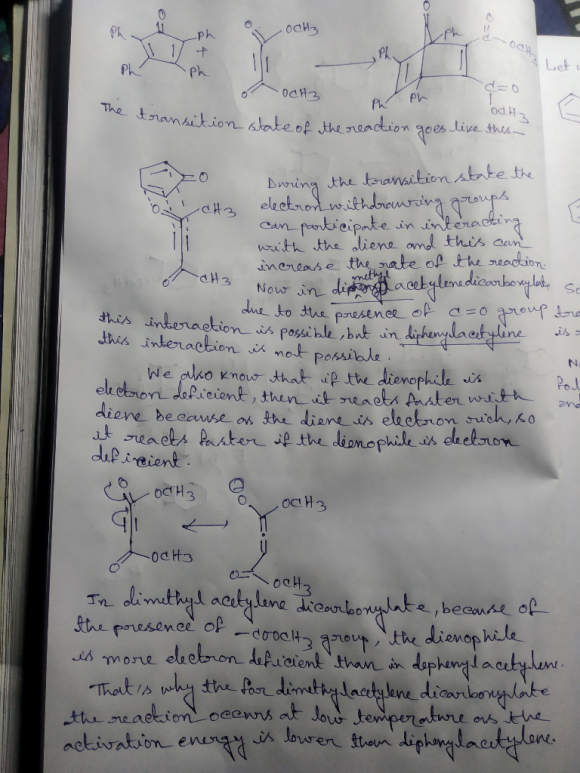 O
Ph
Ph
Ph
Ph
+
O
OCH3
O
OCH3
O
Ph
Ph
Ph
Ph
C=O
OCH3
C=O
OCH3
Let
The transition state of the reaction goes like this—
O
O
CH3
O
CH3
During the transition state the
electron withdrawing groups
can participate in interacting
with the diene and this can
increase the rate of the reaction.
Now in dimethyl acetylenedicarboxylate
due to the presence of C=O group
this interaction is possible, but in diphenylacetylene
this interaction is not possible.
We also know that if the dienophile is
electron deficient, then it reacts faster with
diene because as the diene is electron rich, so
it reacts faster if the dienophile is electron
deficient.
O
OCH3
O
OCH3
⊖
O
OCH3
O
OCH3
In dimethyl acetylene dicarboxylate, because of
the presence of -COOCH3 group, the dienophile
is more electron deficient than in dephenylacetylene.
That's why the for dimethylacetylene dicarboxylate
the reaction occurs at low temperature as the
activation energy is lower than diphenylacetylene.